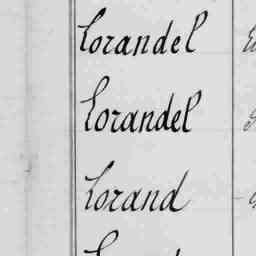 Lorandel
Lorandel
Lorand